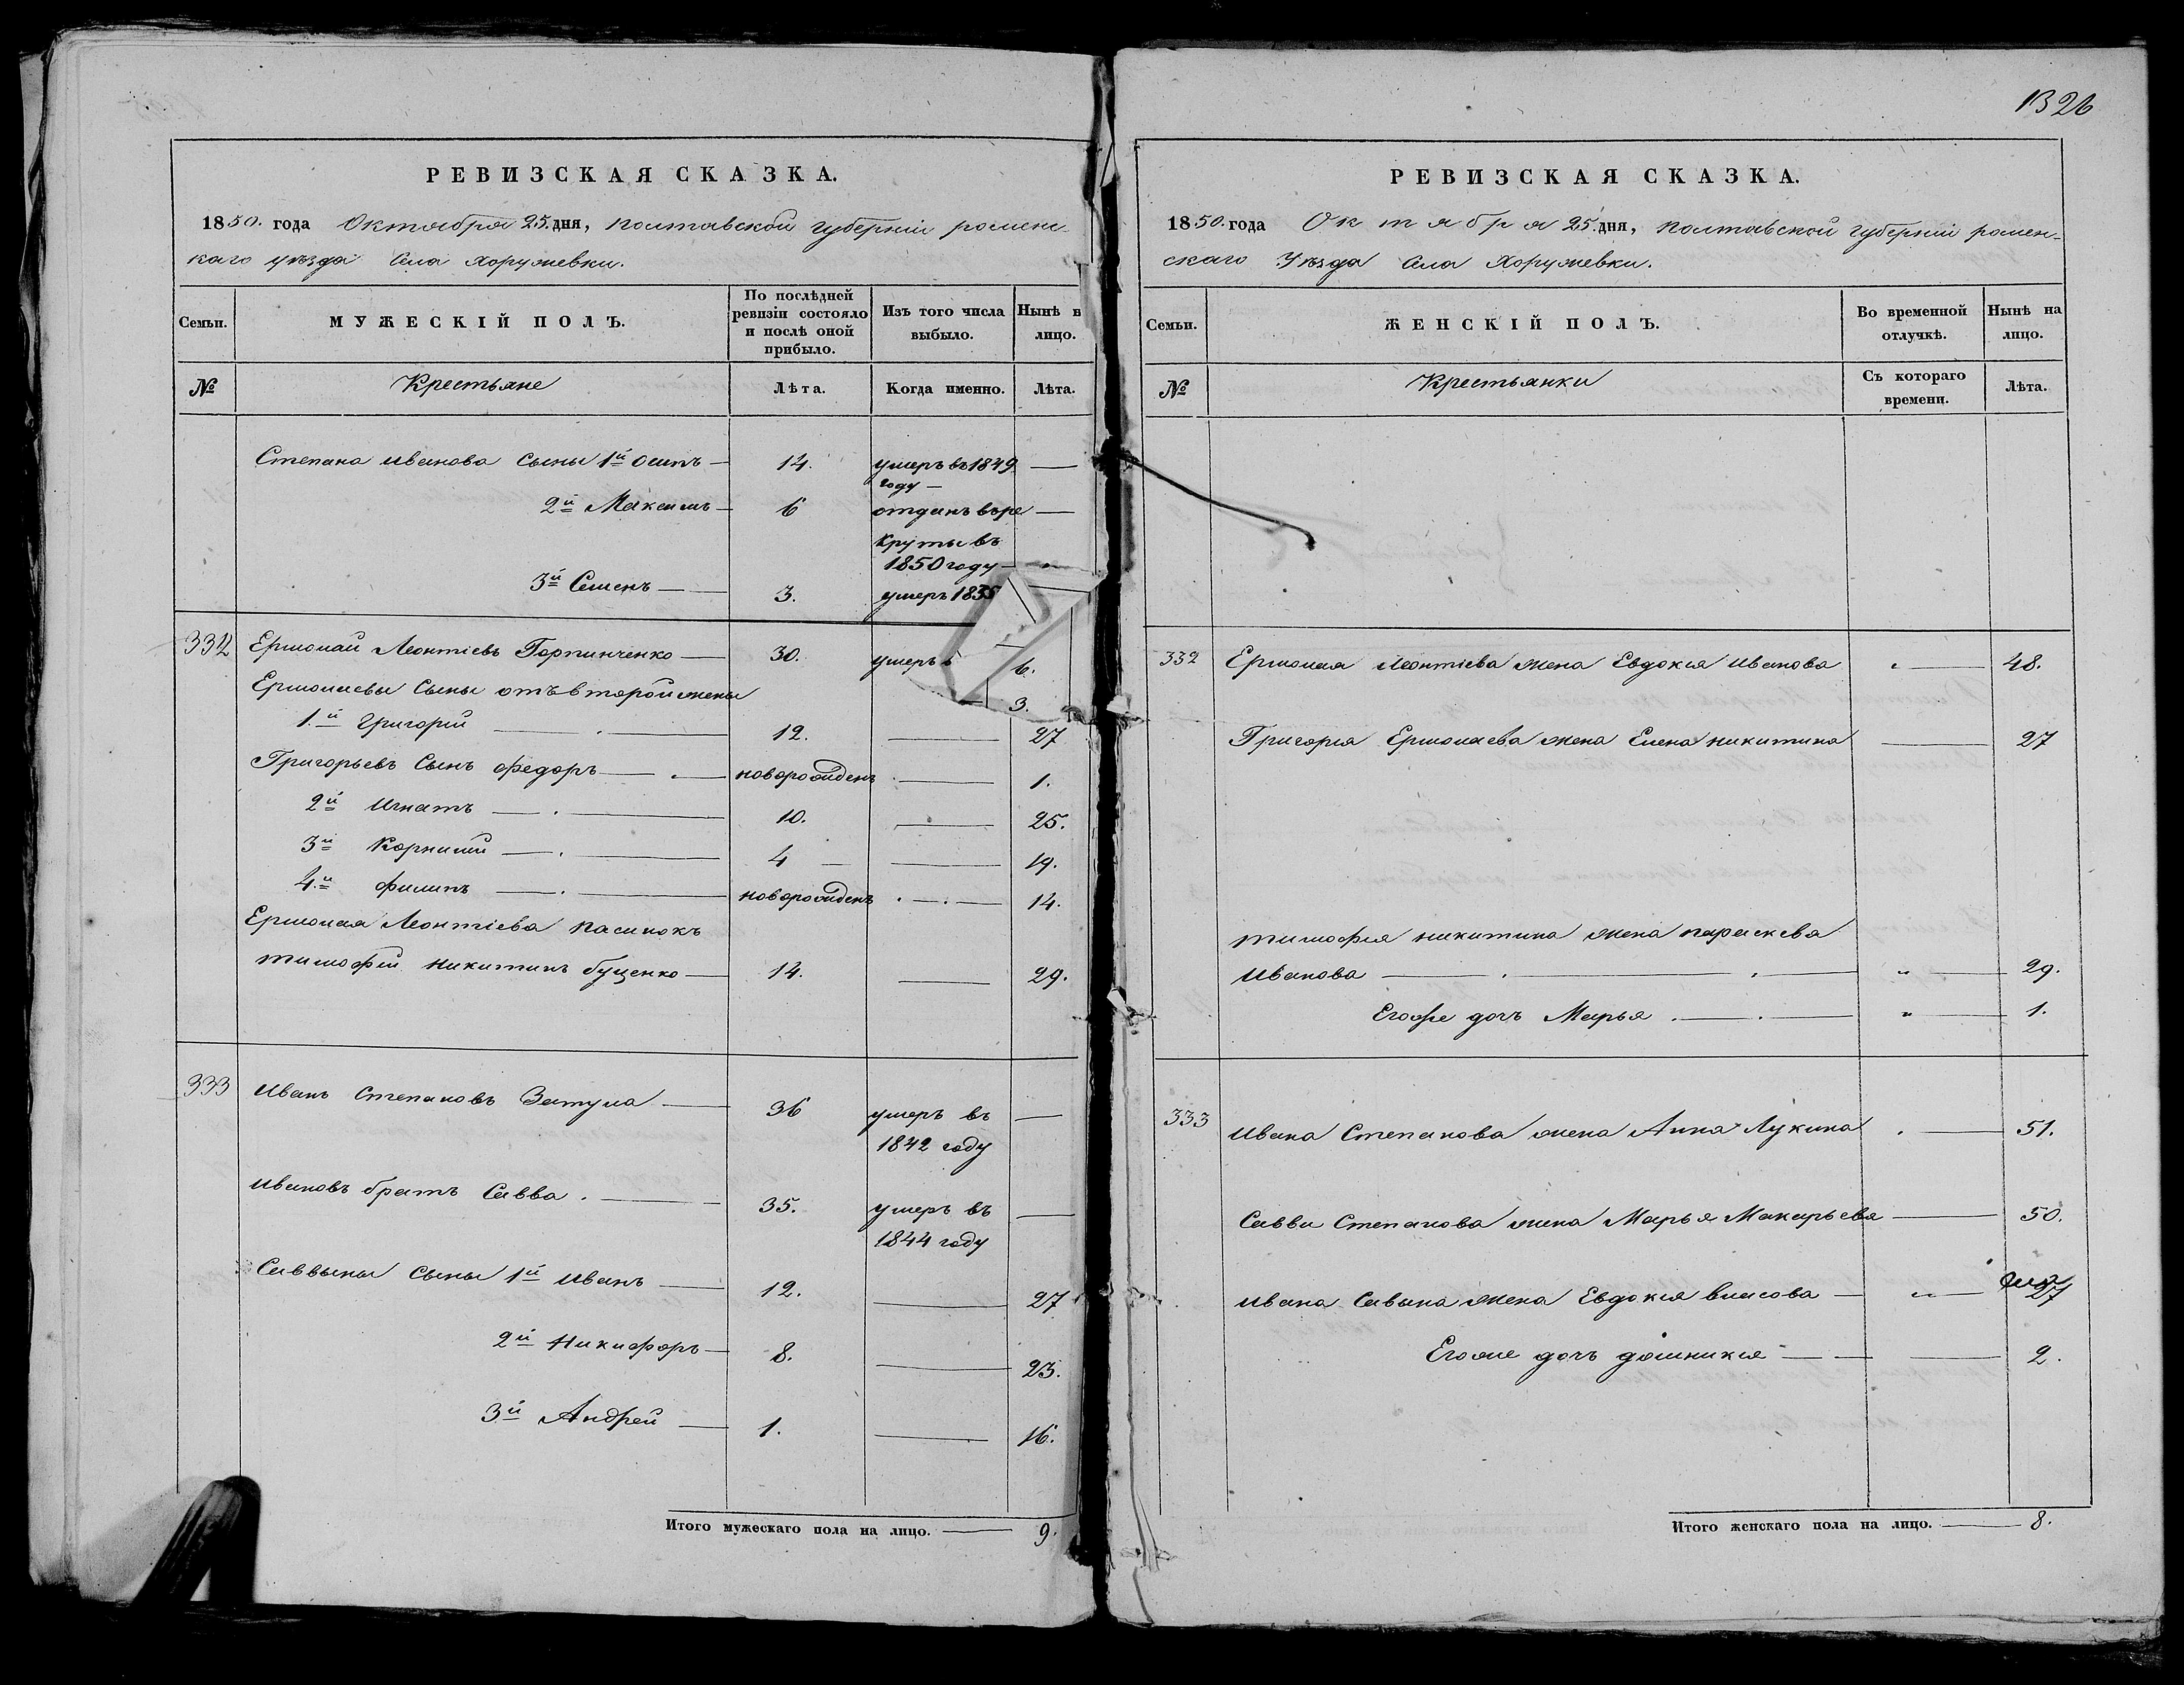 РЕВИЗСКАЯ СКАЗКА.
1850. года Октября 25. дня, полтавской губерніи ромен-
скаго уѣзда Села Хоружевки.
Семьи. МУЖЕСКІЙ ПОЛЪ. По послѣдней ревизіи состояло и послѣ оной прибыло. Изъ того числа выбыло. Нынѣ н лицо.
№ Крестьяне Лѣта. Когда именно. Лѣта.
Степана иванова Сыны 1й Осипъ — 14. умеръ въ 1849 —
году —
2й Максимъ — 6 отданъ въ ре —
круты въ
1850 году —
3й Семенъ — 3. умеръ 1835
332 Ермолай Леонтіевъ Горпинченко — 30. умеръ 6.
Ермолаевы Сыны отъ второй жены 3.
1.й Григорій — 12. — 27
Григорьевъ Сынъ Федоръ — новорожденъ — 1.
2й Игнатъ — 10. — 25.
3й Корнилій — 4 — — 19.
4.й филипъ — новорожденъ — 14.
Ермолая Леонтіева пасинокъ
тимофей никитинъ буценко — 14. — 29.
333 Иванъ Степановъ Затула — 36 умеръ въ —
1842 году
Ивановъ братъ Савва . — 35. умеръ въ —
1844 году
Саввыны Сыны 1й Иванъ — 12. — 27
2й Никифоръ — 8. — 23.
3й Андрей — 1. — 16.
Итого мужескаго пола на лицо. — 9.
1326
РЕВИЗСКАЯ СКАЗКА.
1850. года Октября 25. дня, полтавской губерніи ромен-
скаго Уѣзда Села Хоружевки.
Семьи. ЖЕНСКІЙ ПОЛЪ. Во временной отлучкѣ. Нынѣ на лицо.
№ Крестьянки Съ котораго времени. Лѣта.
332 Ермолая Леонтіева жена Евдокія Иванова — 48.
Григорія Ермолаева жена Елена никитина — 27
тимофея никитина жена параскева
Иванова — „ — 29.
Егоже дочъ Марья . — „ — 1.
333 Ивана Степанова жена Анна Лукина — 51.
Саввы Степанова жена Марья Макарьева — 50.
Ивана Савына жена Евдокія власова — „ — 27
Егоже дочъ домникія — — 2.
Итого женскаго пола на лицо. — 8.